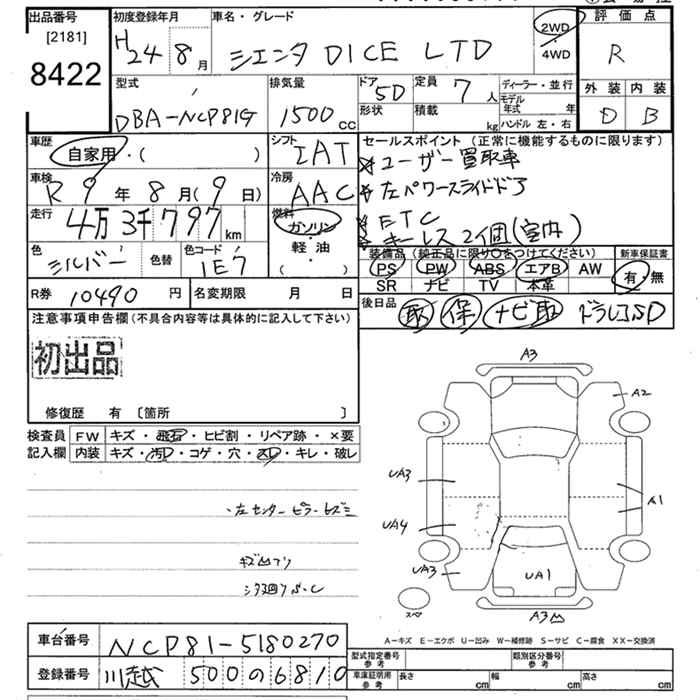 出品番号 初度登録年月 車名・グレード 評価点
[2181] H24年8月 シエンタ DICE LTD 2WD・4WD R
8422
型式 排気量 ドア 5D 定員 7人 ディーラー・並行 外装 内装
DBA-NCP81G 1500cc 形状 積載 kg モデル年式 年 D B
ハンドル 左・右
車歴 シフト セールスポイント (正常に機能するものに限ります)
自家用・( ) IAT ユーザー買取車
車検 R9年8月(9日) 冷房 AAC 左パワースライドドア
走行 4万3千797km 燃料 ガソリン ETC
軽・油 キーレス2個(室内)
・( )
色 シルバー 色替 色コード 1E7 装備品 (純正品に限り○をつけてください) 新車保証書
PS PW ABS エアB AW 有・無
SR ナビ TV 本革
R券 10490円 名変期限 月 日 後日品 取 保 ナビ取 ドラレコSD
注意事項申告欄(不具合内容等は具体的に記入して下さい)
初出品
修復歴 有 [箇所 ]
検査員 FW キズ・飛石・ヒビ割・リペア跡・×要
記入欄 内装 キズ・汚レ・コゲ・穴・スレ・キレ・破レ
A3
A2
UA3
A1
UA4
UA3
UA1
スペ
A3凹
左センターピラーキズ
キズ凹アリ
車台番号 NCP81-5180270
登録番号 川越 500 の 6810
A-キズ E-エクボ U-凹み W-補修跡 S-サビ C-腐食 XX-交換済
型式指定番号 参考 類別区分番号 参考
車庫証明用 参考 長さ cm 幅 cm 高さ cm